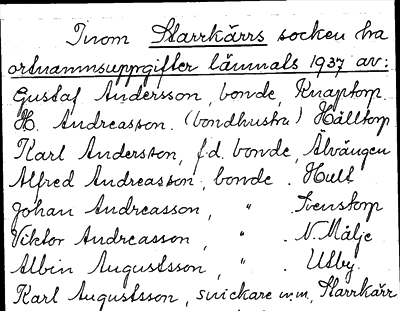 Inom Starrkärrs socken ha
ortnamnsuppgifter lämnats 1937 av:
Gustaf Andersson, bonde, Knaptorp.
H. Andreasson. (bondhustru) Hålltorp
Karl Andersson, f.d. bonde, Älvängen
Alfred Andreasson, bonde. Hult
Johan Andreasson, " Svenstorp
Viktor Andreasson, " . N. Målje
Albin Augustsson, " . Utby.
Karl Augustsson, snickare m.m, Starrkärr